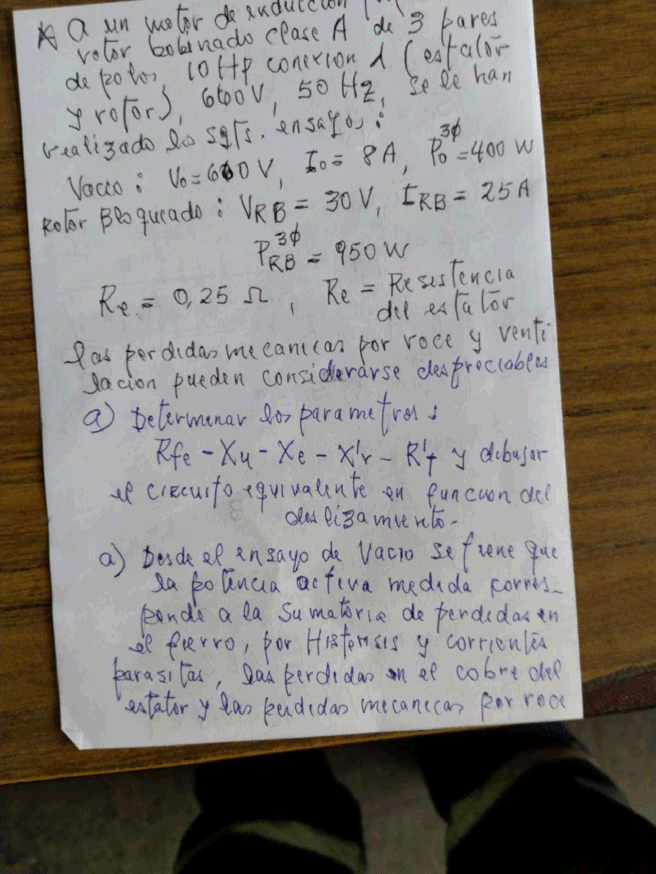 * A un motor de inducción
rotor bobinado clase A de 3 pares
de polos, 10 Hp conexion λ (estator
y rotor), 660V, 50 Hz, se le han
realizado los sgts. ensayos:
Vacio: V₀=660V, I₀= 8A, P₀³ᶲ=400 W
Rotor Bloqueado: V_RB = 30V, I_RB = 25A
P_RB³ᶲ = 950 W
Re = 0,25 Ω, Re = Resistencia
del estator
las perdidas mecanicas por roce y venti
lacion pueden considerarse despreciables
a) Determinar los parametros:
Rfe - Xu - Xe - X'r - R'r y dibujar
el circuito equivalente en funcion del
deslizamiento.-
a) Desde el ensayo de Vacio se tiene que
la potencia activa medida corres-
ponde a la sumatoria de perdidas en
el fierro, por Histerisis y corrientes
parasitas, las perdidas en el cobre del
estator y las perdidas mecanicas por roce